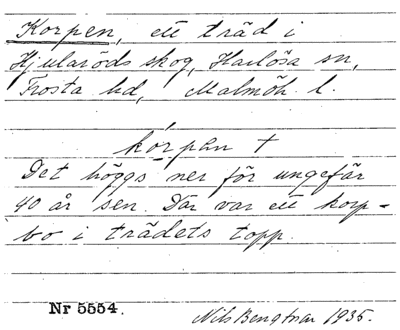 Korpen, ett träd i
Hjularöds skog, Harlösa sn,
Frosta hd, Malmöh l.
kórpån +
Det höggs ner för ungefär
40 år sen. Där var ett korp-
bo i trädets topp.
Nr 5554. Nils Bengtsson 1935.